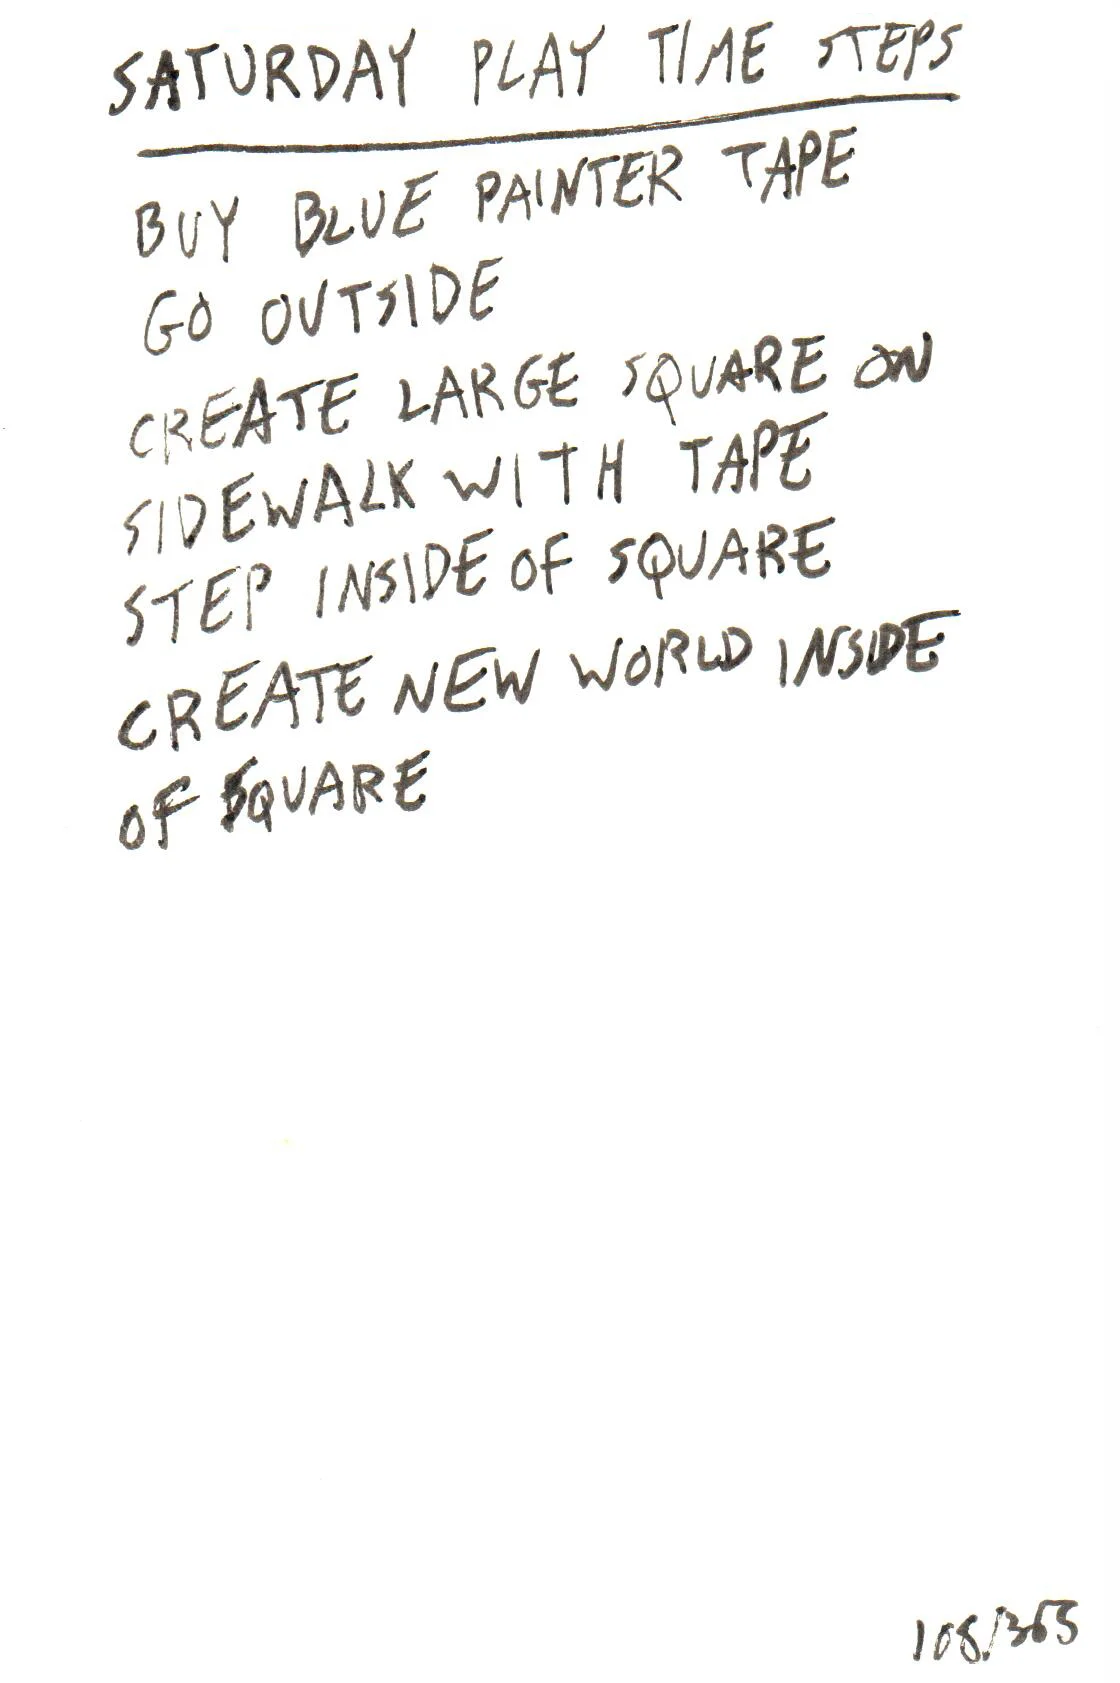 SATURDAY PLAY TIME STEPS
BUY BLUE PAINTER TAPE
GO OUTSIDE
CREATE LARGE SQUARE ON
SIDEWALK WITH TAPE
STEP INSIDE OF SQUARE
CREATE NEW WORLD INSIDE
OF SQUARE
108/365